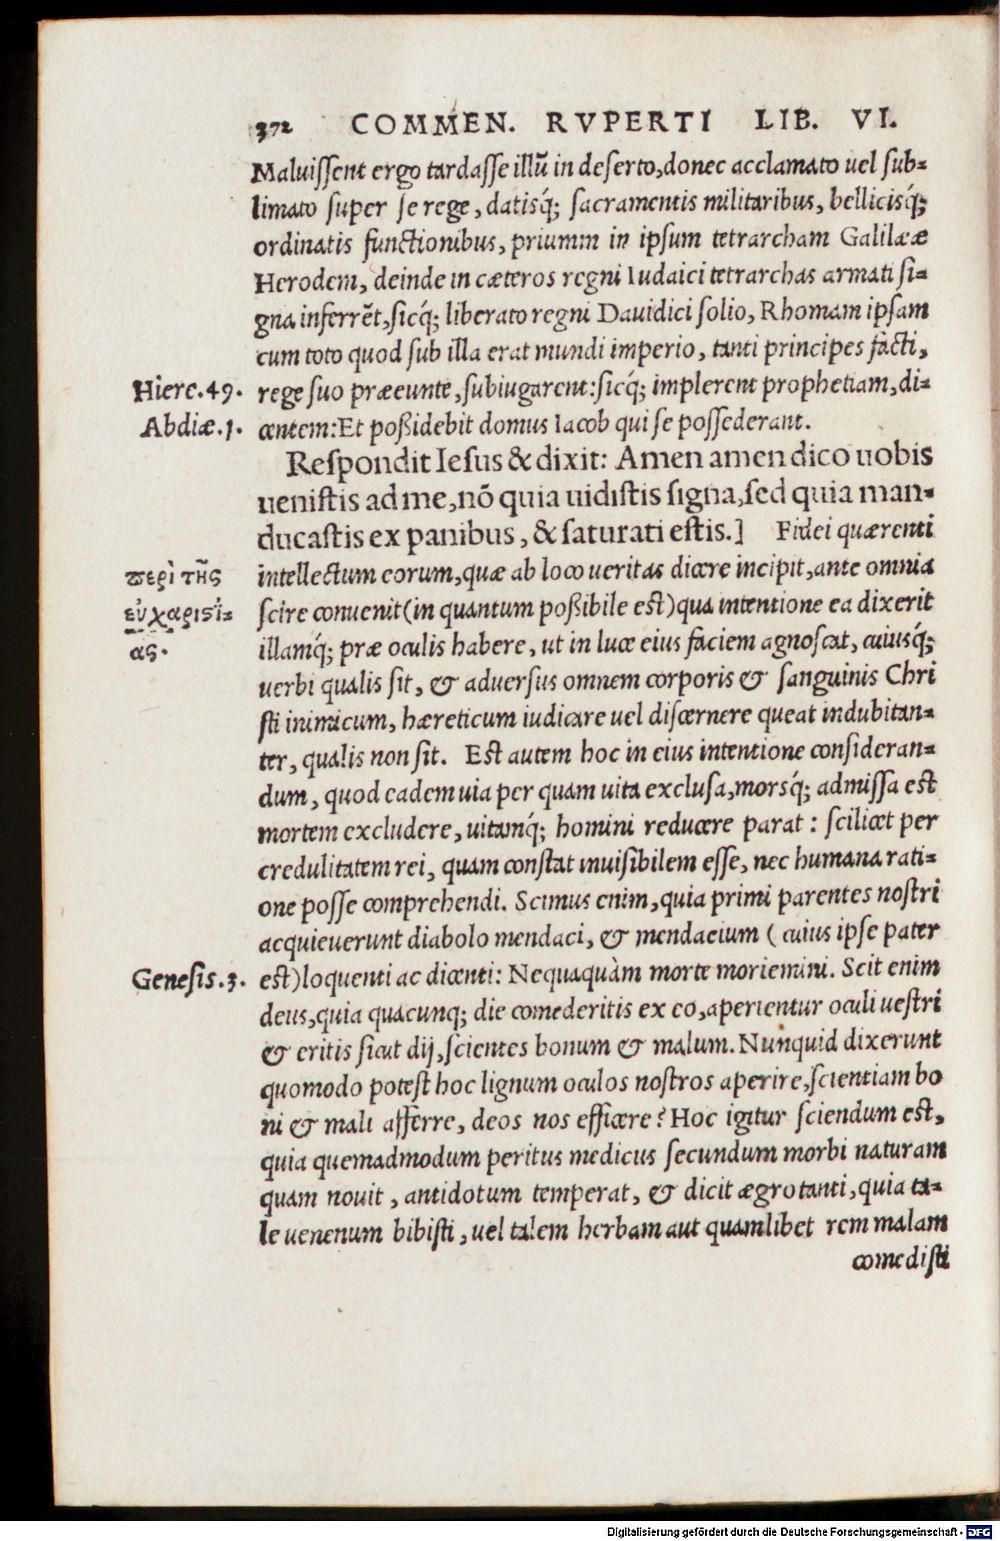 372 COMMEN. RVPERTI LIB. VI.
Maluiſſent ergo tardaſſe illũ in deſerto, donec acclamato uel ſub-
limato ſuper ſe rege, datisq́; ſacramentis militaribus, bellicisq́;
ordinatis functionibus, priumm in ipſum tetrarcham Galilææ
Herodem, deinde in cæteros regni Iudaici tetrarchas armati ſi-
gna inferrẽt, ſicq́; liberato regni Dauidici ſolio, Rhomam ipſam
cum toto quod ſub illa erat mundi imperio, tanti principes facti,
Hiere. 49. rege ſuo præeunte, ſubiugarent: ſicq́; implerent prophetiam, di-
Abdiæ. 1. centem: Et poßidebit domus Iacob qui ſe poſſederant.
Reſpondit Ieſus & dixit: Amen amen dico uobis
ueniſtis ad me, nõ quia uidiſtis ſigna, ſed quia man-
ducaſtis ex panibus, & ſaturati eſtis.] Fidei quærenti
περὶ τῆς intellectum eorum, quæ ab loco ueritas dicere incipit, ante omnia
εὐχαριϛί- ſcire conuenit (in quantum poßibile eſt) qua intentione ea dixerit
ας. illamq́; præ oculis habere, ut in luce eius faciem agnoſcat, cuiusq́;
uerbi qualis ſit, & aduerſus omnem corporis & ſanguinis Chri
ſti inimicum, hæreticum iudicare uel diſcernere queat indubitan-
ter, qualis non ſit. Eſt autem hoc in eius intentione conſideran-
dum, quod eadem uia per quam uita excluſa, morsq́; admiſſa eſt
mortem excludere, uitamq́; homini reducere parat: ſcilicet per
credulitatem rei, quam conſtat inuiſibilem eſſe, nec humana rati-
one poſſe comprehendi. Scimus enim, quia primi parentes noſtri
acquieuerunt diabolo mendaci, & mendacium (cuius ipſe pater
Geneſis. 3. eſt) loquenti ac dicenti: Nequaquàm morte moriemini. Scit enim
deus, quia quacunq; die comederitis ex eo, aperientur oculi ueſtri
& eritis ſicut dij, ſcientes bonum & malum. Nunquid dixerunt
quomodo poteſt hoc lignum oculos noſtros aperire, ſcientiam bo
ni & mali afferre, deos nos efficere? Hoc igitur ſciendum eſt,
quia quemadmodum peritus medicus ſecundum morbi naturam
quam nouit, antidotum temperat, & dicit ægrotanti, quia ta-
le uenenum bibiſti, uel talem herbam aut quamlibet rem malam
comediſti
Digitalisierung gefördert durch die Deutsche Forschungsgemeinschaft - DFG